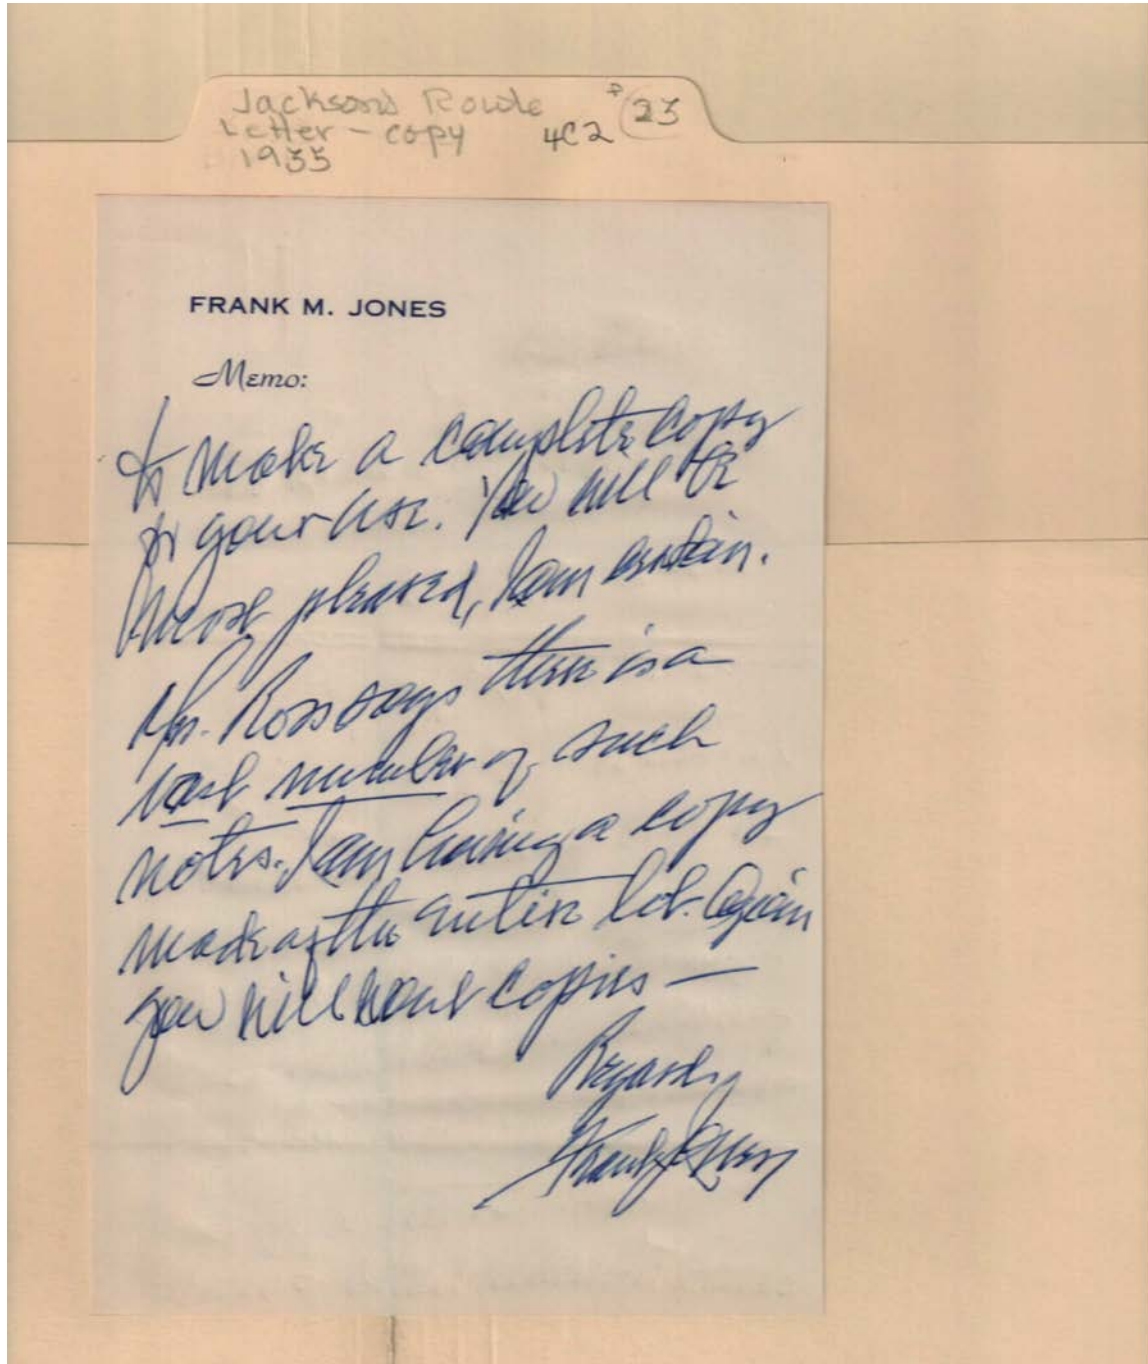 Jackson's Route
Letter - copy 4C2 23
1935
FRANK M. JONES
Memo:
to make a complete copy
for your use. You will be
most pleased, I am certain.
Mr. Ross says there is a
vast number of such
notes. I am having a copy
made of the entire lot. Again
you will want copies —
Regards,
Frank Jones